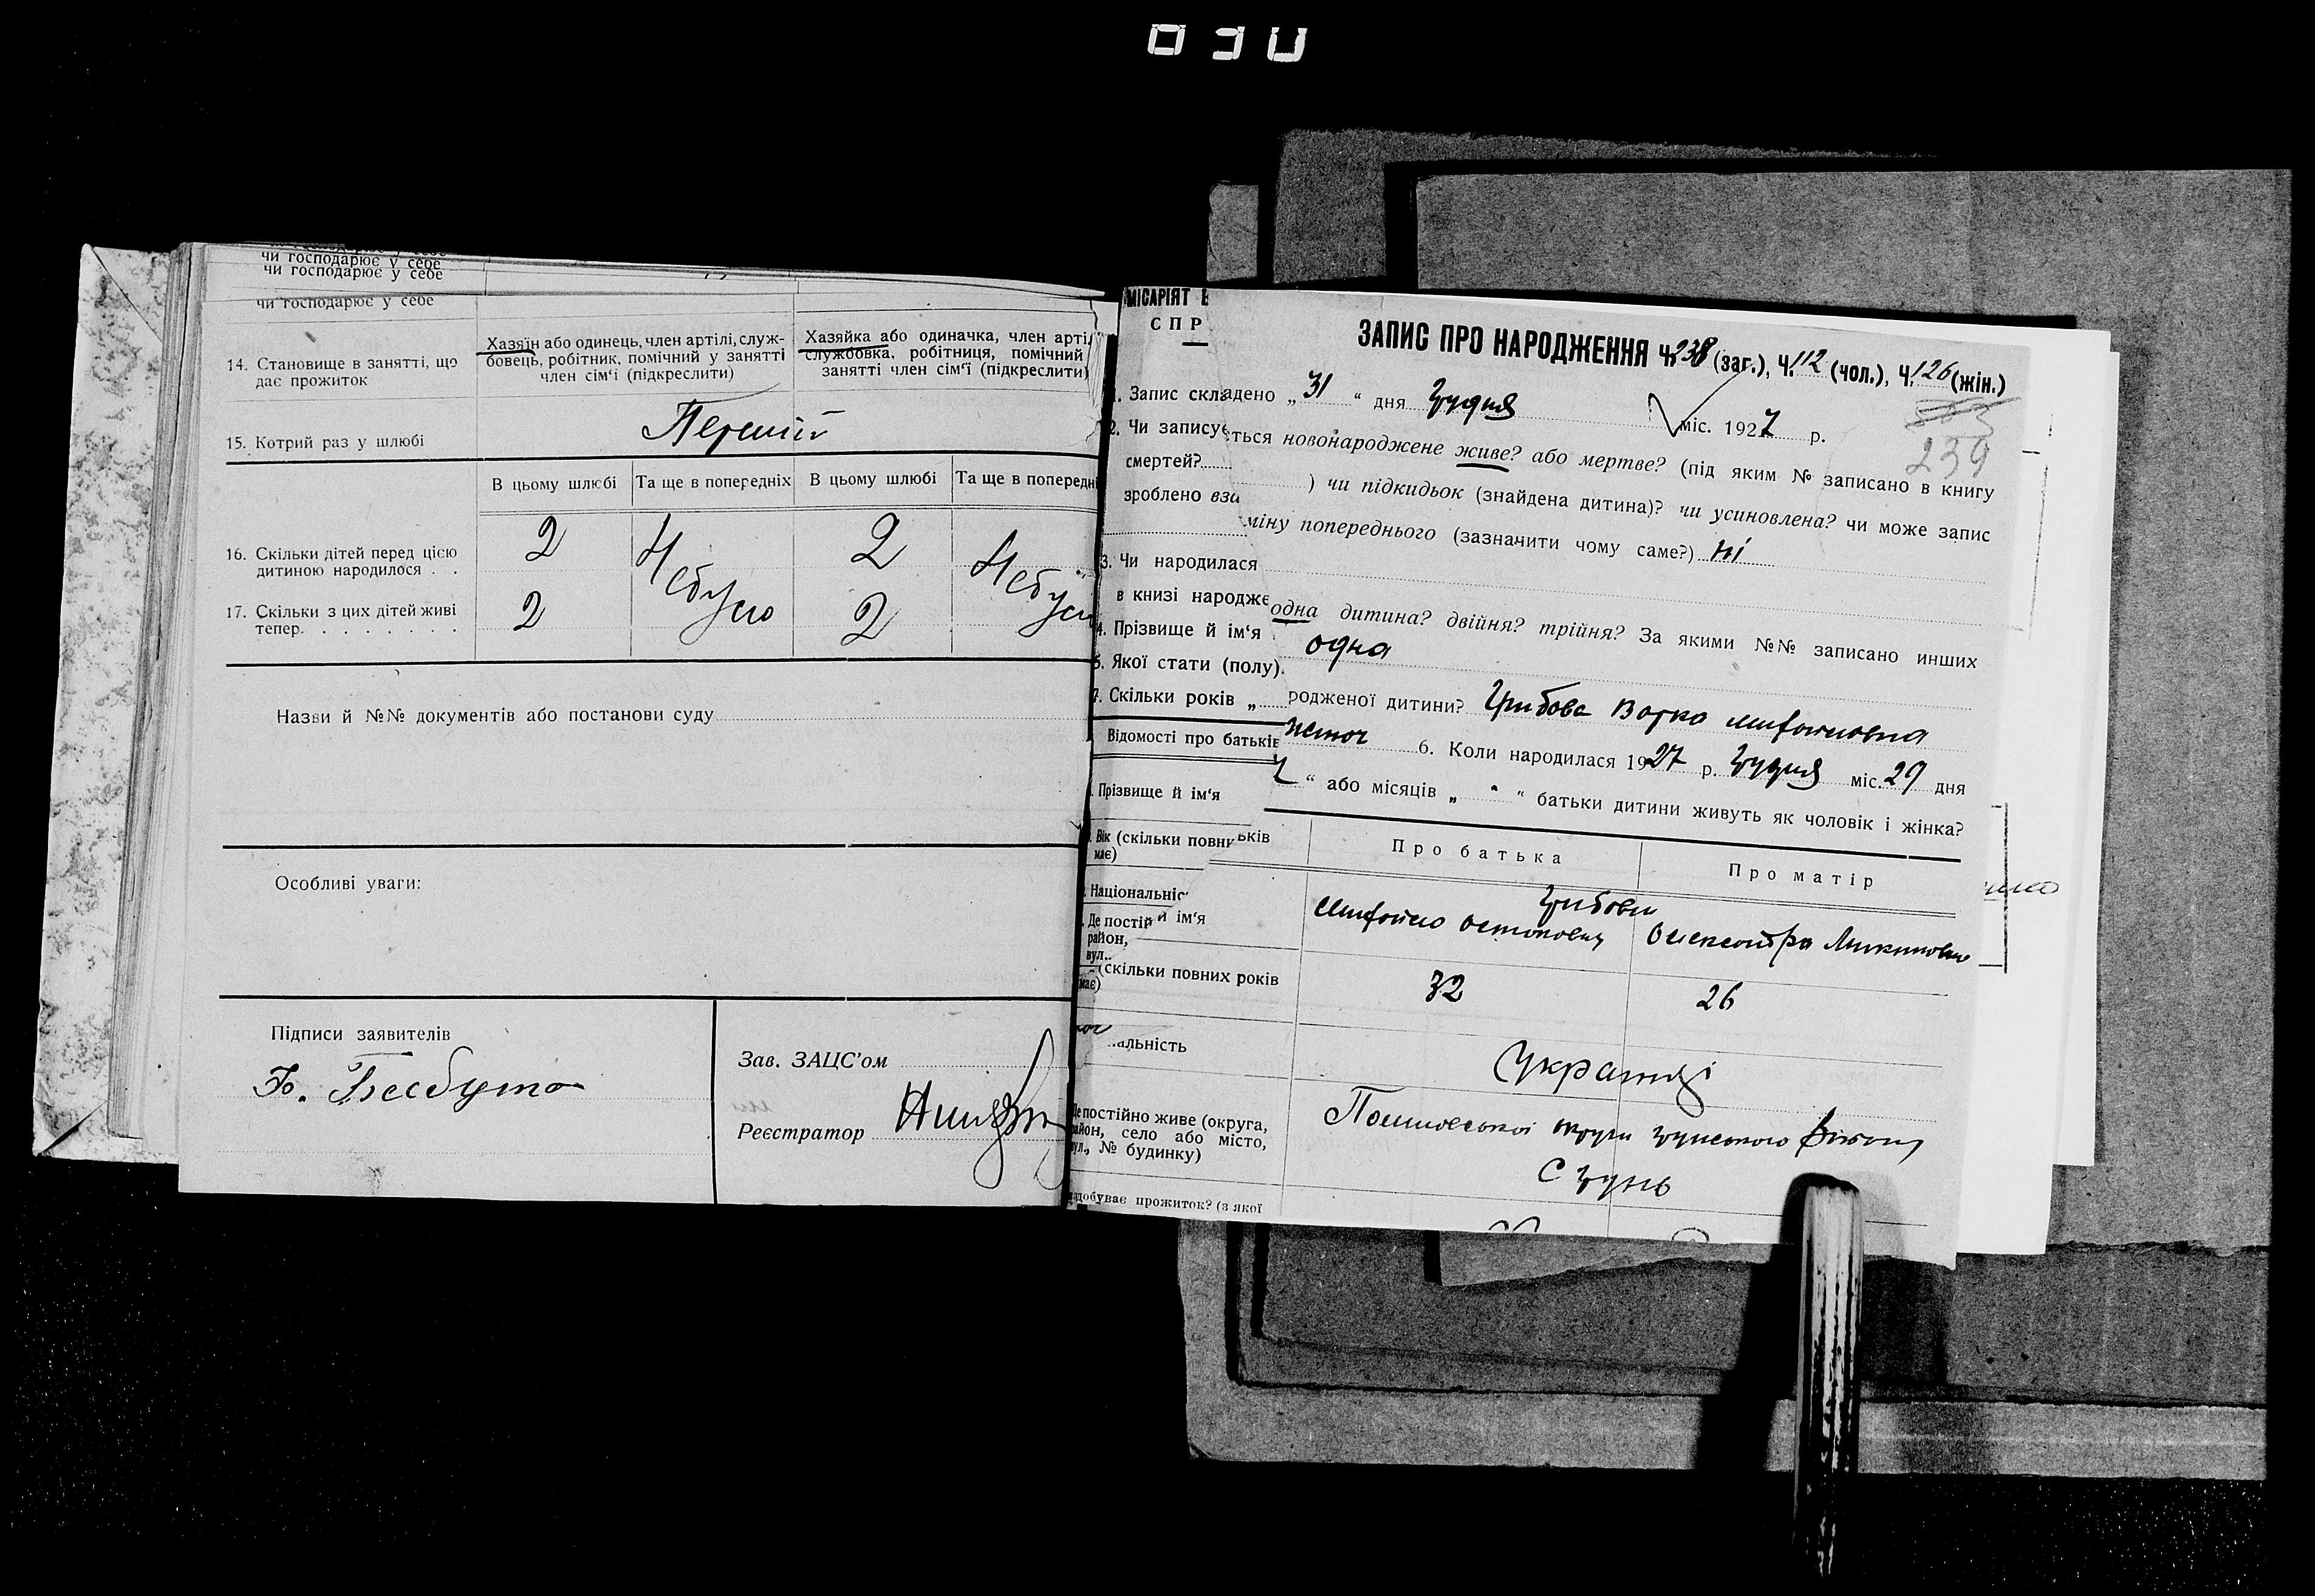 030
чи господарює у себе
чи господарює у себе
чи господарює у себе
14. Становище в занятті, що дає прожиток
Хазяїн або одинець, член артілі, служ-
бовець, робітник, помічний у занятті
член сім'ї (підкреслити)
Хазяйка або одиначка, член артіл
службовка, робітниця, помічний
занятті член сім'ї (підкреслити)
15. Котрий раз у шлюбі Перший
В цьому шлюбі Та ще в попередніх В цьому шлюбі Та ще в попередні
16. Скільки дітей перед цією
дитиною народилося . . 2 2
17. Скільки з цих дітей живі
тепер. . . . . . . . 2 2
Назви й №№ документів або постанови суду
Особливі уваги:
Підписи заявителів
Зав. ЗАЦС'ом
Реєстратор
МІСАРІЯТ В
СПР
ЗАПИС ПРО НАРОДЖЕННЯ Ч. 238 (заг.), Ч. 112 (чол.), Ч. 126 (жін.)
239
1. Запис складено „ 31 “ дня Грудня міс. 1927 р.
2. Чи записується новонароджене живе? або мертве? (під яким № записано в книгу
смертей? ) чи підкидьок (знайдена дитина)? чи усиновлена? чи може запис
зроблено вза міну попереднього (зазначити чому саме?) Ні
3. Чи народилася одна дитина? двійня? трійня? За якими №№ записано инших
в книзі народже одна
4. Прізвище й ім'я родженої дитини? Грибова Варка
5. Якої стати (полу). жіноч 6. Коли народилася 1927 р. Грудня міс. 29 дня
7. Скільки років „ “ або місяців „ “ батьки дитини живуть як чоловік і жінка?
Відомості про батьків
Про батька Про матір
Прізвище й ім'я
Вік (скільки повни
має)
Національніс
Де постій
район,
вул.
й ім'я Грибови
Олександра
(скільки повних років
має) 32 26
альність Українці
Де постійно живе (округа,
район, село або місто,
вул., № будинку)
округи Грунського району
С Грунь
здобуває прожиток? (з якої